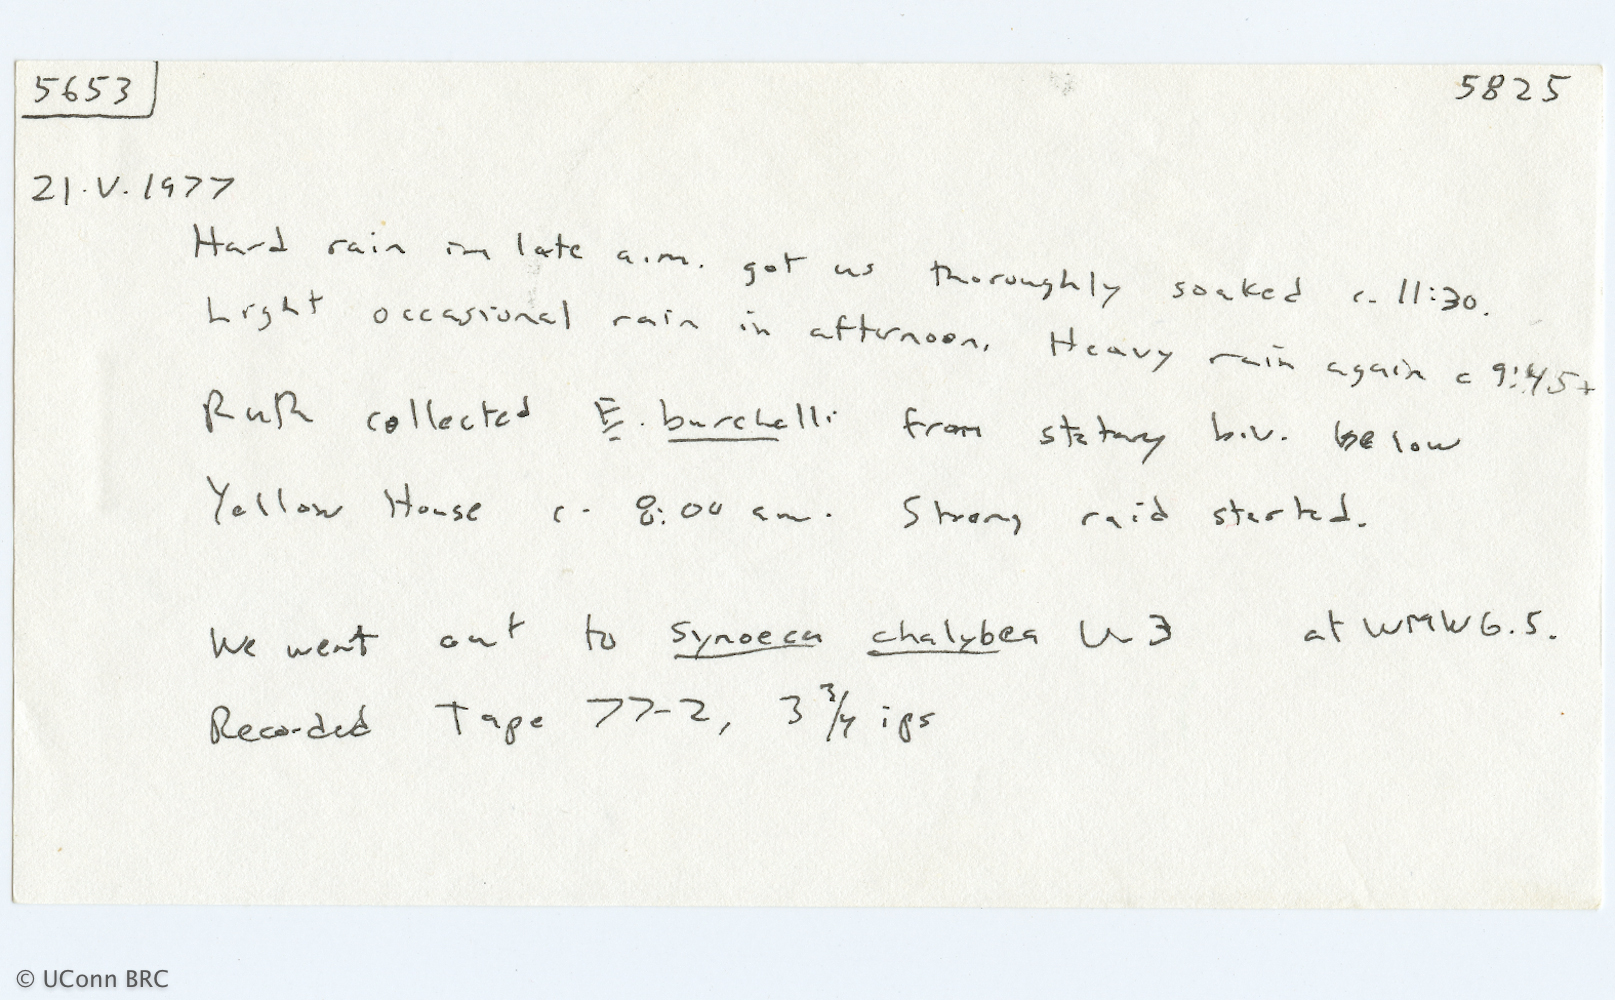 5653 5825
21.V.1977
Hard rain in late a.m. got us thoroughly soaked c. 11:30.
Light occasional rain in afternoon. Heavy rain again c 9:45+
RuR collected E. burchelli from statary biv. below
Yellow House c. 8:00 am. Strong raid started.
We went out to Synoeca chalybea at WMW 6.5.
Recorded Tape 77-2, 3 3/4 ips
© UConn BRC